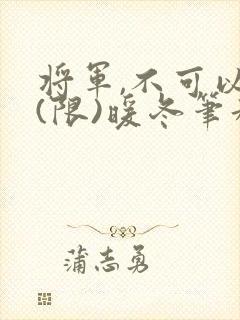 將軍,不可以
(限)暖冬筆
蒲志勇